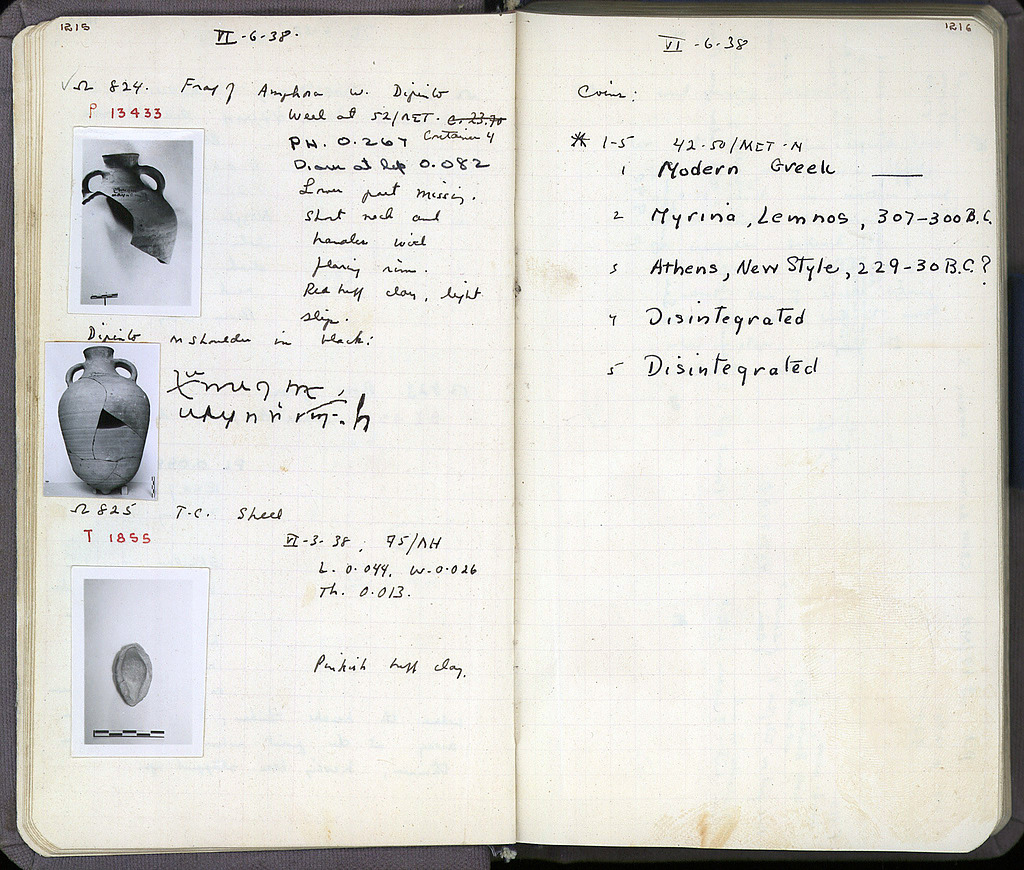 1215
VI-6-38.
Ω 824. Frag of Amphora w. Dipinto
P 13433
Well at 52/ΛΣΤ.
Container 4
PH. 0.267
Diam at lip 0.082
Lower part missing.
Short neck and
handles with
flaring rim.
Red buff clay, light
slip.
Dipinto on shoulder in black:
Ω 825 T.C. Shell
T 1855
VI-3-38, 95/ΛΗ
L. 0.044, W. 0.026
Th. 0.013.
Pinkish buff clay.
1216
VI-6-38
Coins:
1-5 42-50/
1 Modern Greek
2 Myrina, Lemnos, 307-300 B.C.
3 Athens, New Style, 229-30 B.C.?
4 Disintegrated
5 Disintegrated